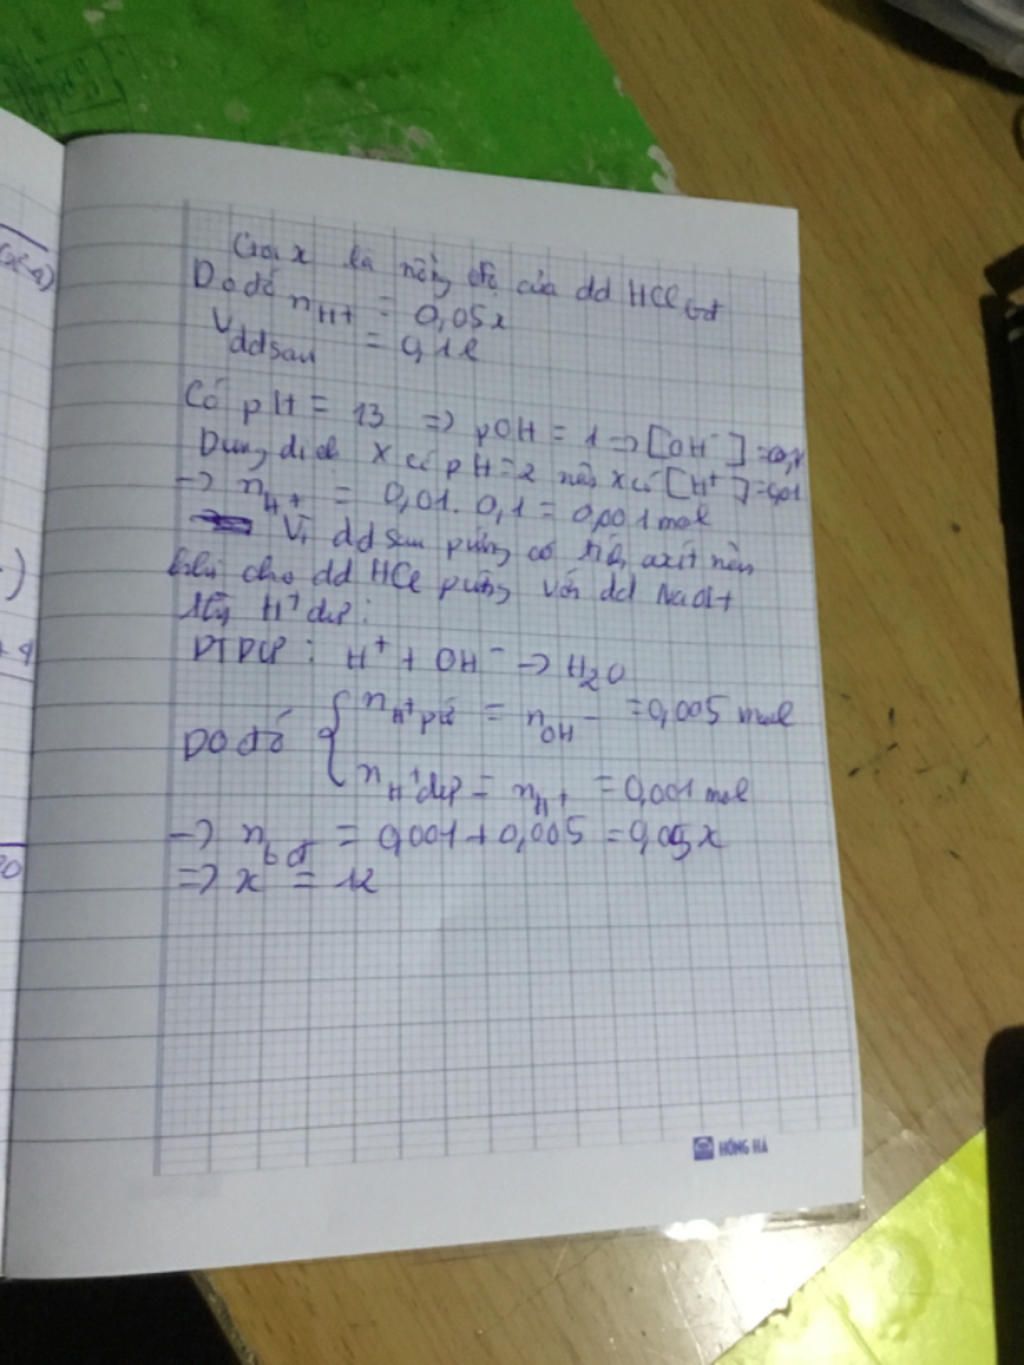 Gọi x là nồng độ của dd HCl bđ
Do đó nH+ = 0,05x
Vddsau = 0,1l
Có pH = 13 => pOH = 1 -> [OH-] = 0,1
Dung dịch X có pH = 2 nên X có [H+] = 0,01
-> nH+ = 0,01. 0,1 = 0,001 mol
Vì dd sau pứng có axit nên
khi cho dd HCl pứng với dd NaOH
H+ dư:
PTPƯ: H+ + OH- -> H2O
Do đó nH+pư = nOH- = 0,005 mol
nH+dư = nH+ = 0,001 mol
-> nbđ = 0,001 + 0,005 = 0,05x
=> x = 12
HỒNG HÀ
(x-4)
)
+ 4
20